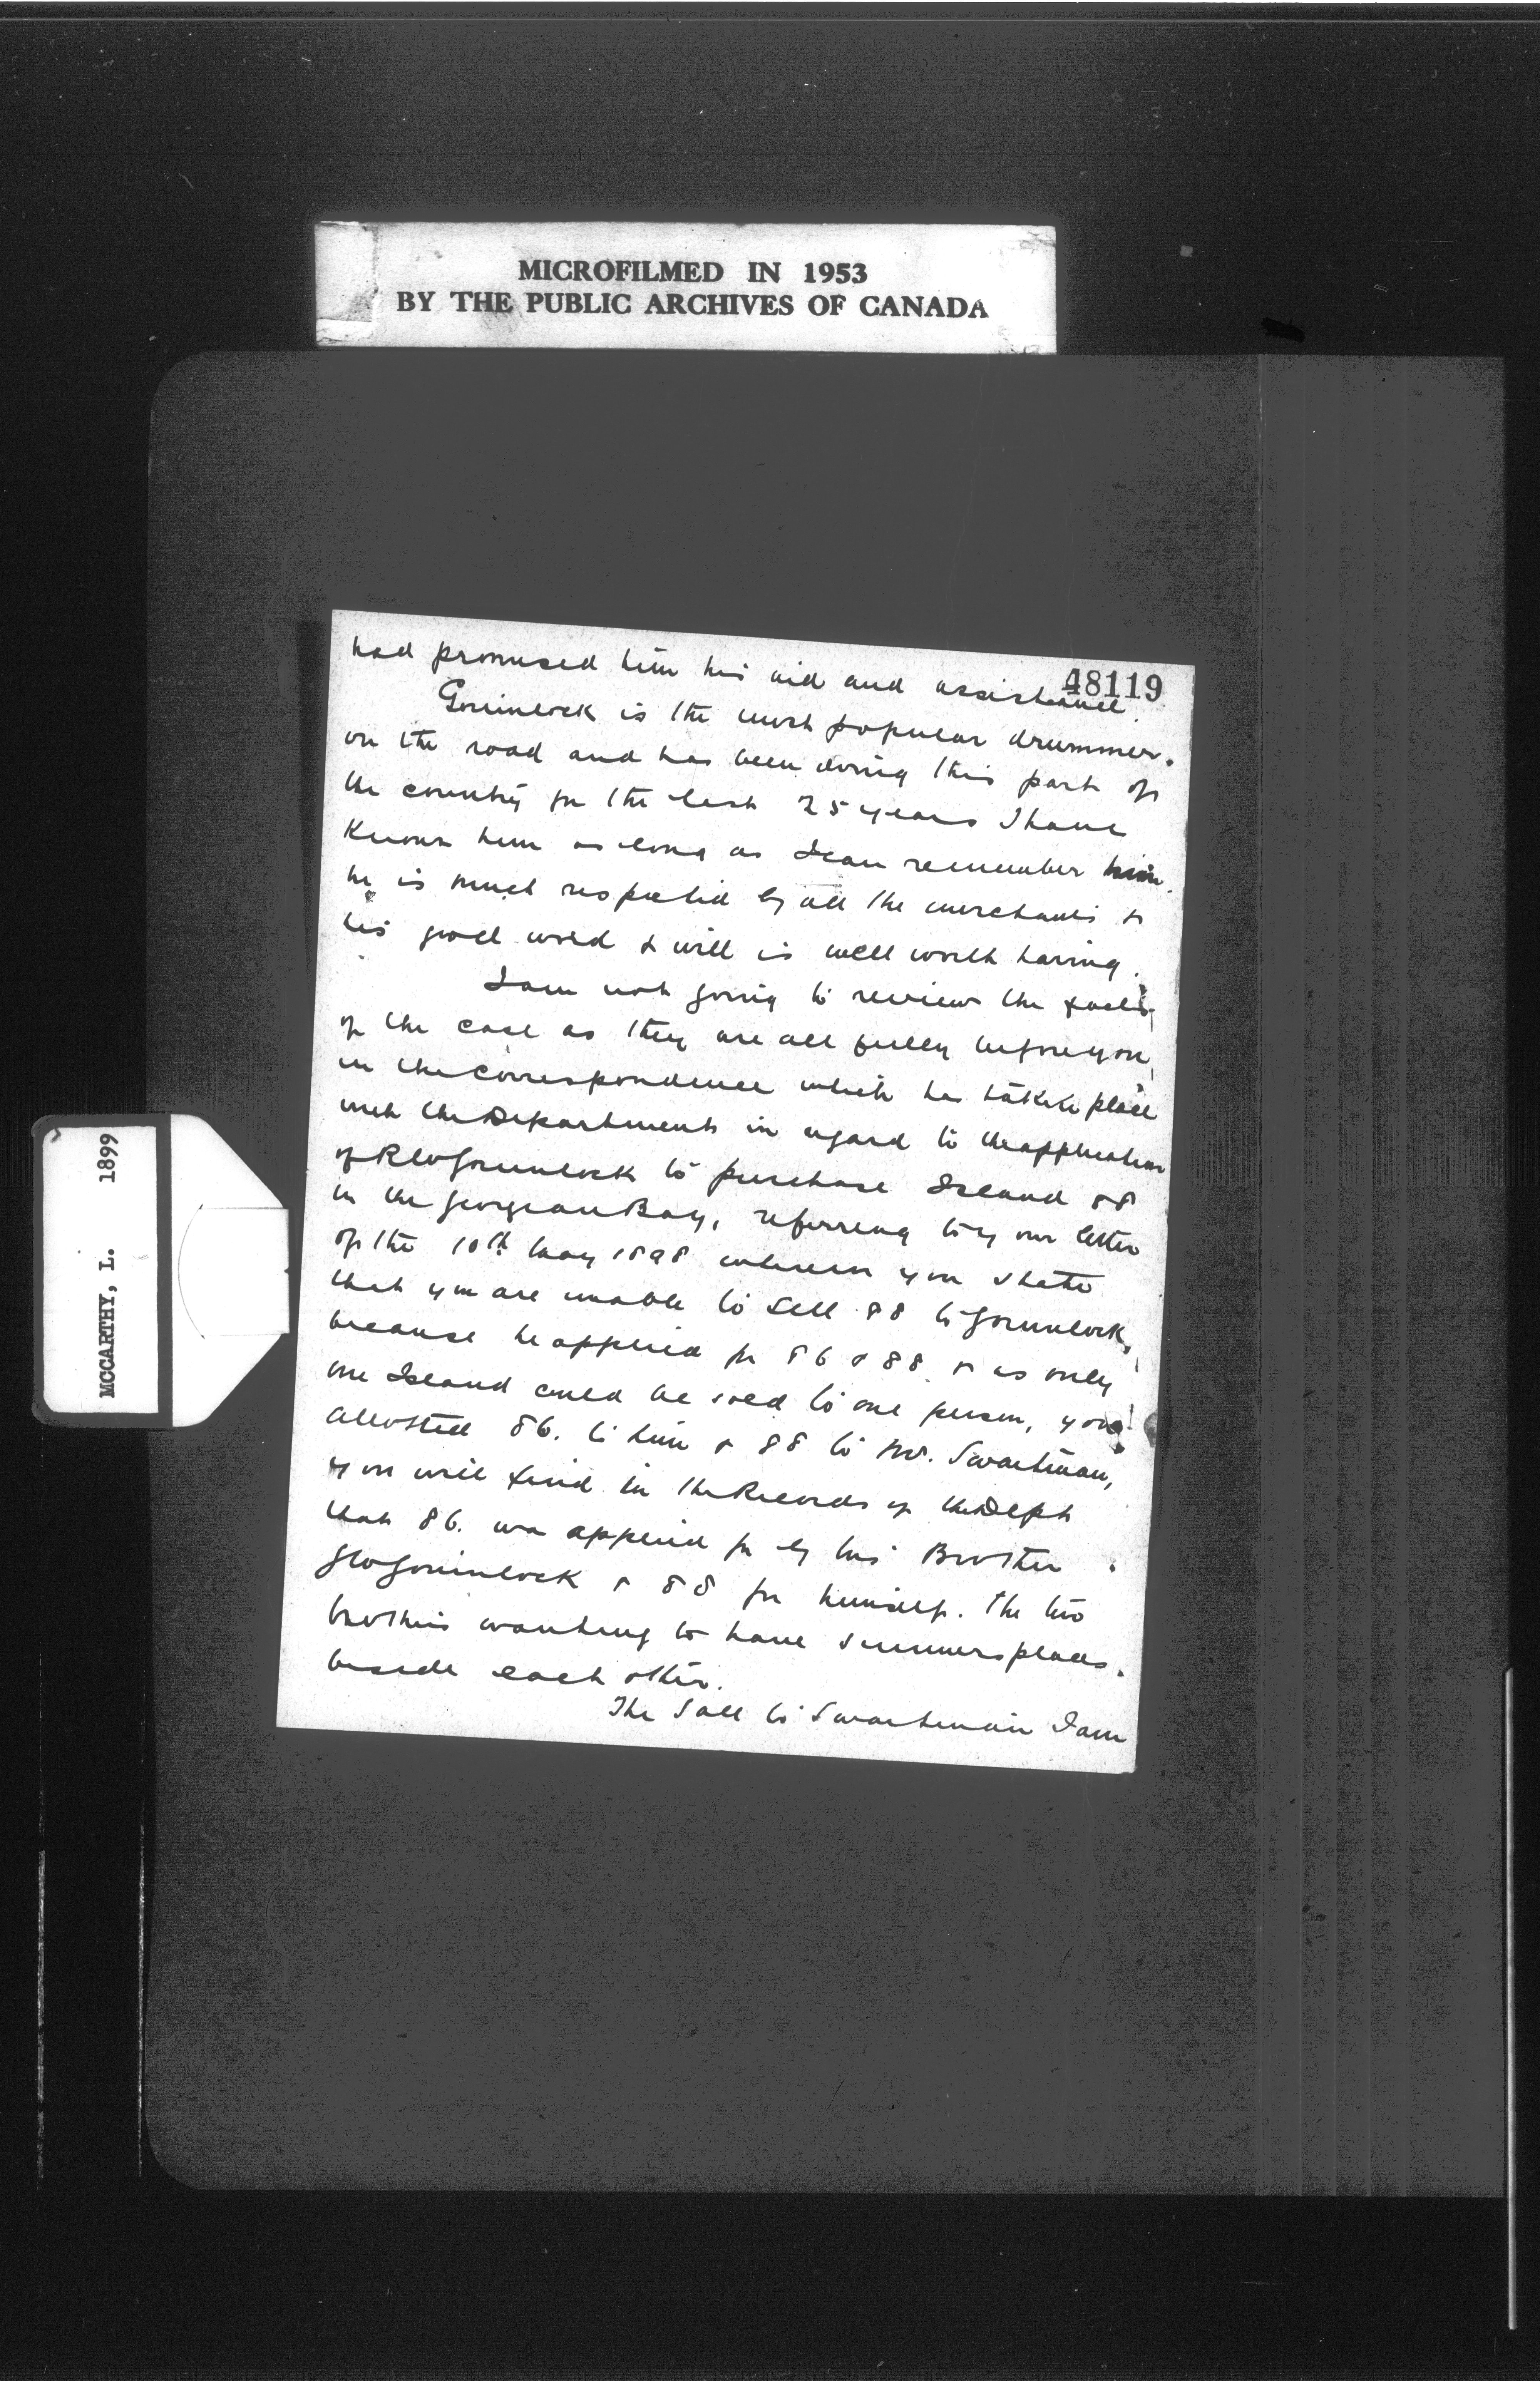 MICROFILMED IN 1953
BY THE PUBLIC ARCHIVES OF CANADA
MCCARTHY, L. 1899
48119
had promised him his aid and assistance.
Gorinlock is the most popular drummer
on the road and has been doing this part of
the country for the last 25 years I have
known him as long as I can remember him.
he is much respected by all the merchants &
his good word & will is well worth having.
I am not going to review the facts
of the case as they are all fully before you
in the correspondence which has taken place
with the Department in regard to the application
of Gorinlock to purchase Island 88
in the Georgean Bay, referring to your letter
of the 10th May 1898 wherein you state
that you are unable to sell 88 to Gorinlock,
because he applied for 86 & 88 & as only
one Island could be sold to one person, you
allotted 86. to him & 88 to Mr. Swartman,
you will find in the Records of the Dept
that 86. was applied for by his Brother
Geo Gorinlock & 88 for himself. The two
brothers wanting to have summer places
beside each other.
The Sale to Swartman I am